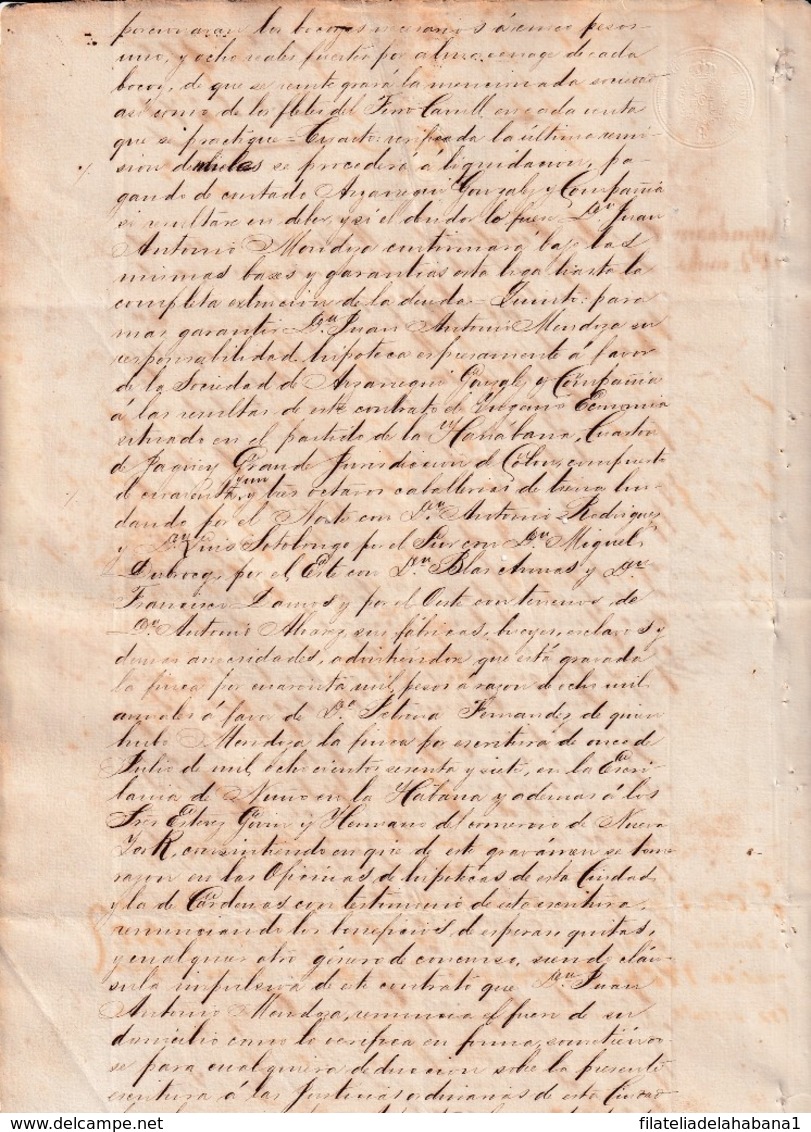 porcionaran los bocoyes necesarios á cinco pesos
uno, y ocho reales fuertes por almacenage de cada
bocoy, de que se reintegrará la mencionada sociedad
así como de los fletes del Ferro Carril, en cada venta
que se practique = Cuarto: verificada la última remi-
sion de mieles se procederá á liquidacion, pa-
gando de contado Arranegui Gonzalez y Compañia
si resultare en deber, y si el deudor lo fuere Dn. Juan
Antonio Mendoza continuará bajo las
mismas bases y garantias esta hasta la
completa extincion de la deuda = Quinto: para
mas garantia Dn. Juan Antonio Mendoza su
responsabilidad hipoteca espresamente á favor
de la Sociedad de Arranegui Gonzalez y Compañia
á las resultas de este contrato el Yngenio Ecmania
situado en el partido de la Hanábana, Cuarton
de Jagüey Grande Jurisdiccion de Colon, compuesto
de cuarenta y una y tres octavos caballerias de tierra lin-
dando por el Norte con Dn. Antonio Rodriguez
y Dn. Luis Sotolongo por el Sur con Dn. Miguel
Dubrocq, por el Este con Dn. Blas Armas y Dn.
Francisco Ramos y por el Oeste con terrenos de
Dn. Antonio Alvarez, sus fábricas, bueyes, esclavos y
demas anecsidades, advirtiendose que está gravada
la finca por cuarenta mil pesos á razon de ocho mil
anuales á favor de Da. Fernandez de quien
hubo Mendoza la finca por escritura de once de
Julio de mil ochocientos sesenta y siete, en la Escri-
bania de Nuno en la Habana y ademas á los
Sres Estevez Govin y Hermano del comercio de Nueva
York, consintiendo en que de este gravámen se tome
razon en las Oficinas de hipotecas de esta Ciudad
y la de Cárdenas con testimonio de esta escritura,
renunciando los beneficios, de esperas, quitas,
y cualquier otro género de concurso, siendo cláu-
sula impulsiva de este contrato que Dn. Juan
Antonio Mendoza, renuncia el fuero de su
domicilio como lo verifica en forma, sometiéndo-
se para cualquiera deduccion sobre la presente
escritura á las Justicias ordinarias de esta Ciudad
filateliadelahabana1